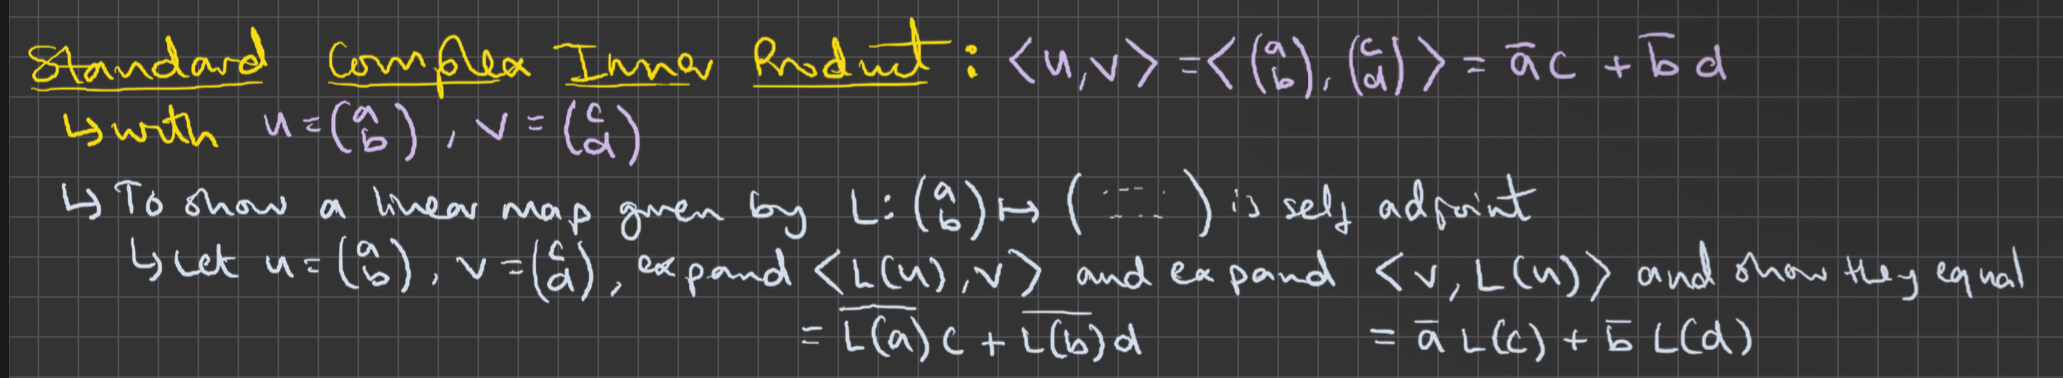 Standard Complex Inner Product: <u,v> = <(a b), (c d)> = āc + b̄d
↳ with u = (a b), v = (c d)
↳ To show a linear map given by L: (a b) ↦ ( ... ... ) is self adjoint
↳ Let u = (a b), v = (c d), expand <L(u), v> and expand <v, L(u)> and show they equal
= \overline{L(a)} c + \overline{L(b)} d = ā L(c) + b̄ L(d)